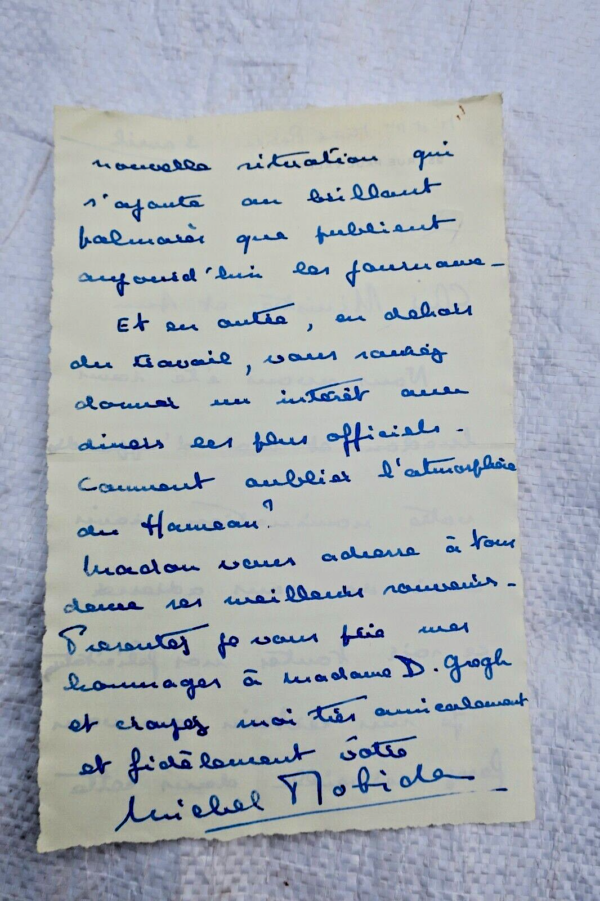 nouvelle situation qui
s'ajoute au brillant
palmarès que publient
aujourd'hui les journaux -
Et en outre, en dehors
du travail, vous saurez
donner un intérêt aux
diners les plus officiels -
Comment oublier l'atmosphère
du Hameau?
Madou vous adresse à tous
deux ses meilleurs souvenirs -
Présentez je vous prie mes
hommages à madame D. Grogh
et croyez moi très amicalement
et fidèlement vôtre
Michel